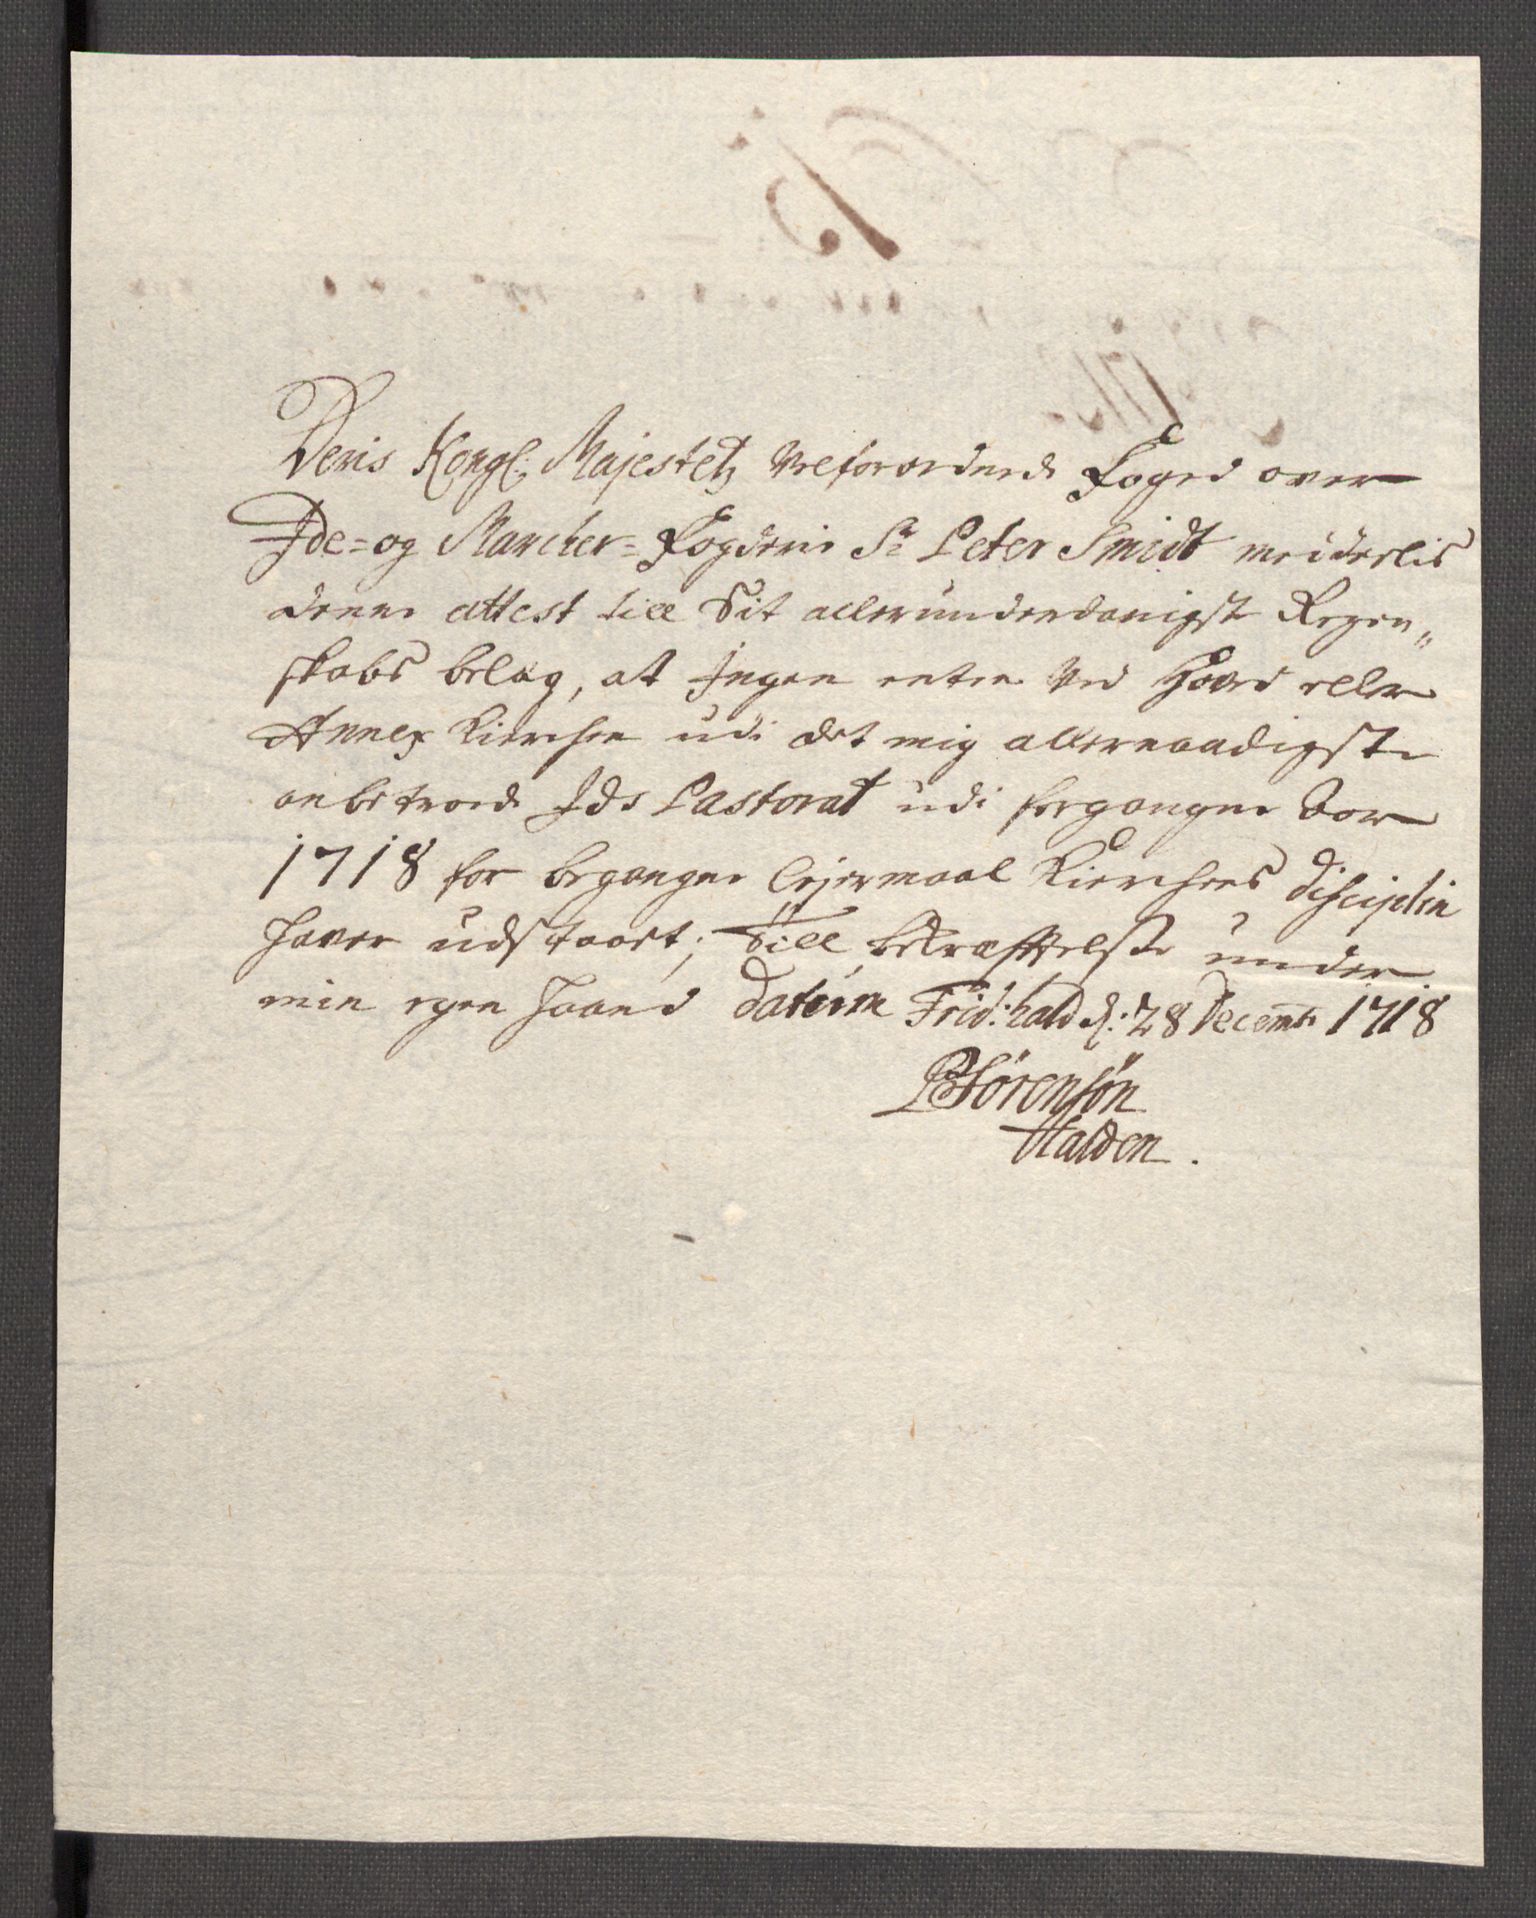 Deris Kongl: Majestetz Velforordnede Foged over
Ide=og Marcker=Fogderie Sr Peter Smidt meideelis
denne attest till Sit allerunderdanigste Regen„
skabs belæg, at Ingen enten Ved Hoved eller
Annex Kierchen udi det mig allernaadigste
anbetroede Ids Pastorat udi forgangne Aar
1718 for begangne Lejermaal Kierchens disciplin
haver udstaaet; Till bekræfftelse under
min egen haand datum Frid:hald d: 28 Decembr 1718
PSørensøn
Halden.